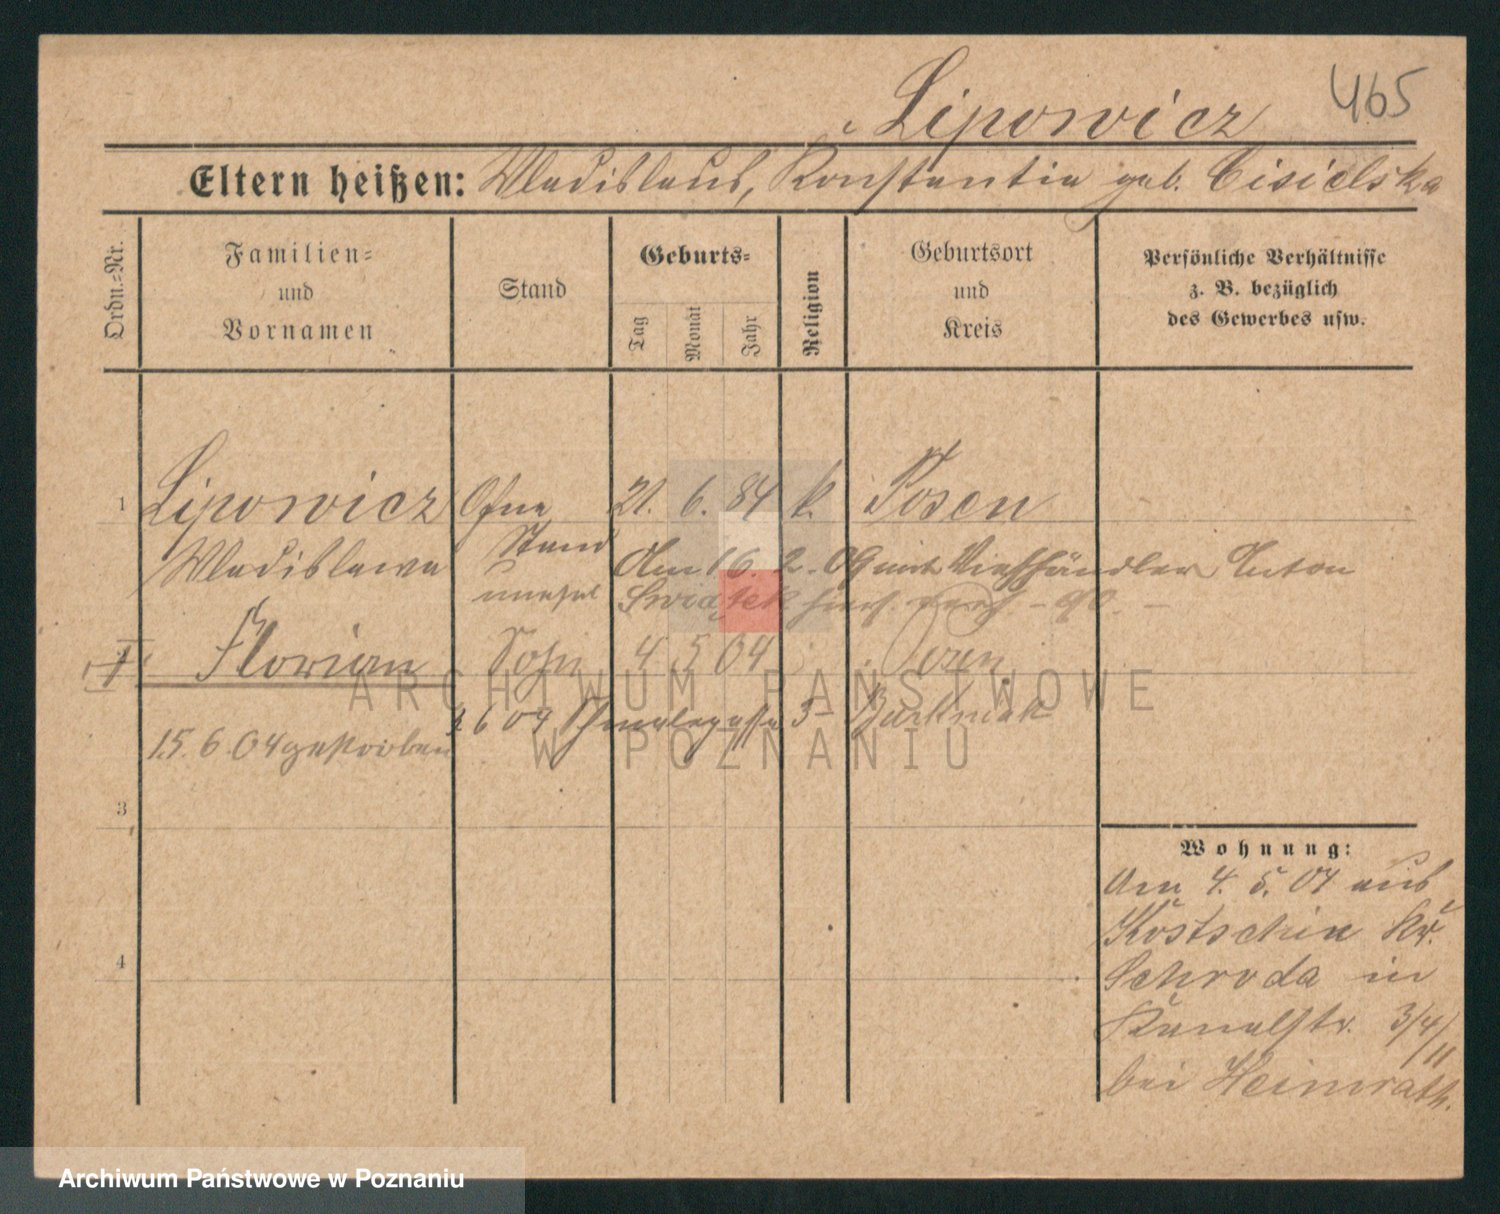 465
Lipowicz
Eltern heißen: Wladislaus, Konstantia geb. Cisielska
Ordn.-Nr.
Familien-
und
Vornamen
Stand
Geburts-
Tag
Monat
Jahr
Religion
Geburtsort
und
Kreis
Persönliche Verhältnisse
z. B. bezüglich
des Gewerbes usw.
1 Lipowicz Ohne 21. 6. 84 k. Posen
Stand
Wladislawa Am 16. 2. 09 mit Viehhändler Anton
unehel Swiątek
Florian Sohn 4 5 04 Posen
2 6 04 3 Bartkowiak
15. 6. 04 gestorben
3
4
Wohnung:
Am 4. 5. 04 aus
Kostschin Kr.
Schroda in
Kanalstr. 3/4/
II
bei Heimrath.
ARCHIWUM PAŃSTWOWE
W POZNANIU
Archiwum Państwowe w Poznaniu